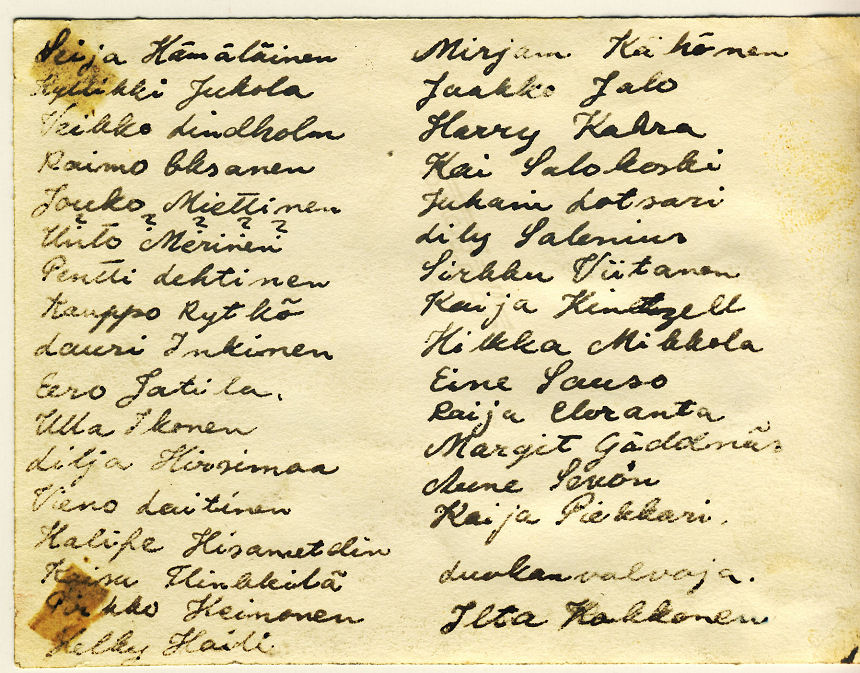 Seija Hämäläinen
Kyllikki Jukola
Veikko Lindholm
Raimo Oksanen
Jouko Miettinen
? ? ? ? ?
Unto Merinen
Pentti Lehtinen
Kauppo Rytkö
Lauri Inkinen
Eero Jatila.
Ulla Ikonen
Lilja Hirsimaa
Vieno Laitinen
Halife Hisametdin
Kaisu Hinkkilä
Pirkko Keinonen
Haidi
Mirjam Kähönen
Jaakko Jalo
Harry Kahra
Kai Salokoski
Juhani Lotsari
Lily Salenius
Sirkku Viitanen
Kaija Kintzell
Hilkka Mikkola
Eine Sauso
Raija Eloranta
Margit Gäddnäs
Aune Sevón
Kaija Piekkari.
Luokanvalvoja.
Ilta Kakkonen